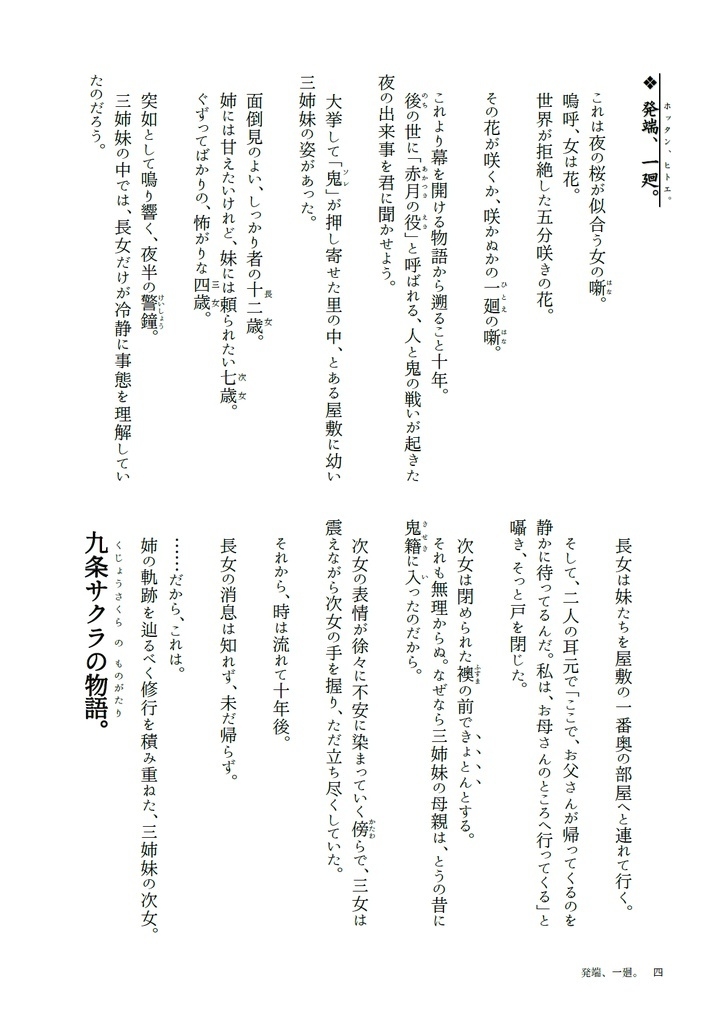 ❖ 発端、一廻。
ホッタン、ヒトエ。
これは夜の桜が似合う女の噺。
はな
嗚呼、女は花。
世界が拒絶した五分咲きの花。
その花が咲くか、咲かぬかの一廻の噺。
ひとえ はな
これより幕を開ける物語から遡ること十年。
後の世に「赤月の役」と呼ばれる、人と鬼の戦いが起きた
のち あかつき えき
夜の出来事を君に聞かせよう。
大挙して「鬼」が押し寄せた里の中、とある屋敷に幼い
ソレ
三姉妹の姿があった。
面倒見のよい、しっかり者の十二歳。
長女
姉には甘えたいけれど、妹には頼られたい七歳。
次女
ぐずってばかりの、怖がりな四歳。
三女
突如として鳴り響く、夜半の警鐘。
けいしょう
三姉妹の中では、長女だけが冷静に事態を理解してい
たのだろう。
長女は妹たちを屋敷の一番奥の部屋へと連れて行く。
そして、二人の耳元で「ここで、お父さんが帰ってくるのを
静かに待ってるんだ。私は、お母さんのところへ行ってくる」と
囁き、そっと戸を閉じた。
次女は閉められた襖の前できょとんとする。
ふすま
それも無理からぬ。なぜなら三姉妹の母親は、とうの昔に
鬼籍に入ったのだから。
きせき い
次女の表情が徐々に不安に染まっていく傍らで、三女は
かたわ
震えながら次女の手を握り、ただ立ち尽くしていた。
それから、時は流れて十年後。
長女の消息は知れず、未だ帰らず。
……だから、これは。
姉の軌跡を辿るべく修行を積み重ねた、三姉妹の次女。
九条サクラの物語。
くじょうさくら の ものがたり
発端、一廻。 四